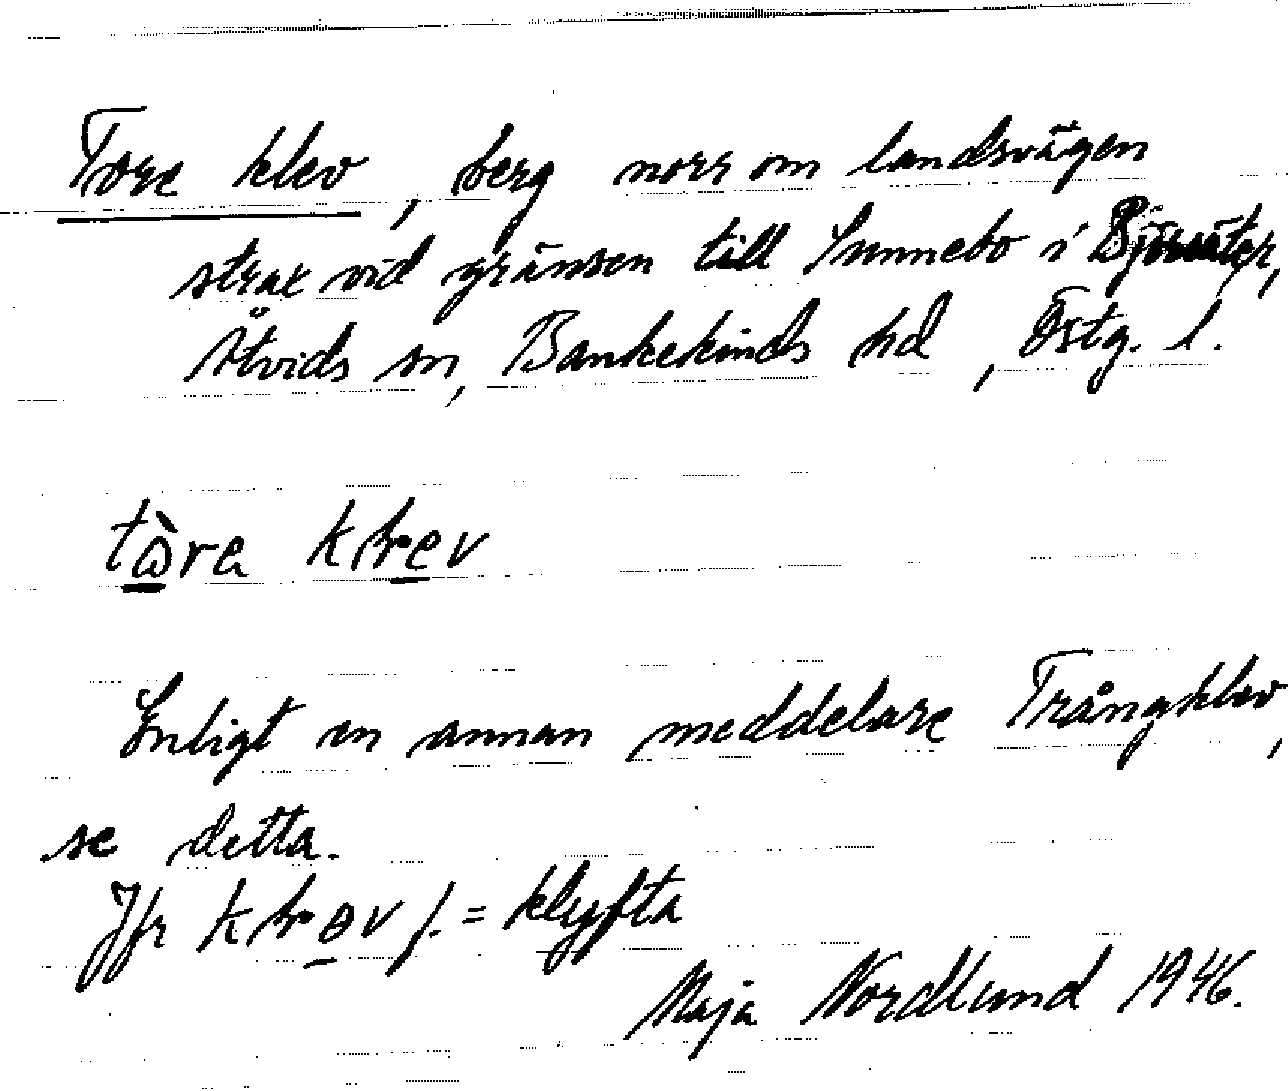 Tore klev, berg norr om landsvägen
strax vid gränsen till Sunnebo i Björsäter,
Åtvids sn, Bankekinds hd, Östg. l.
tὼra kḷev
Enligt en annan meddelare Trångklev,
se detta.
Jfr kḷɵv f. = klyfta
Maja Nordlund 1946.